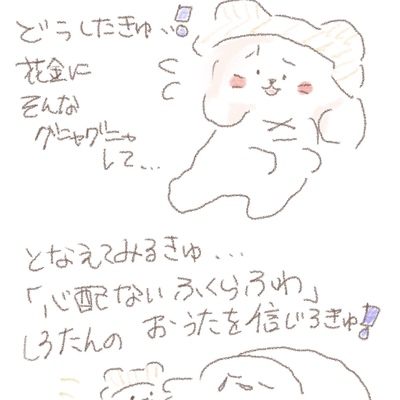 どうしたきゅ…!
花金に
そんな
グニャグニャ
して…
となえてみるきゅ…
「心配ないふくらふわ」
しろたんの おうたを信じろきゅ!